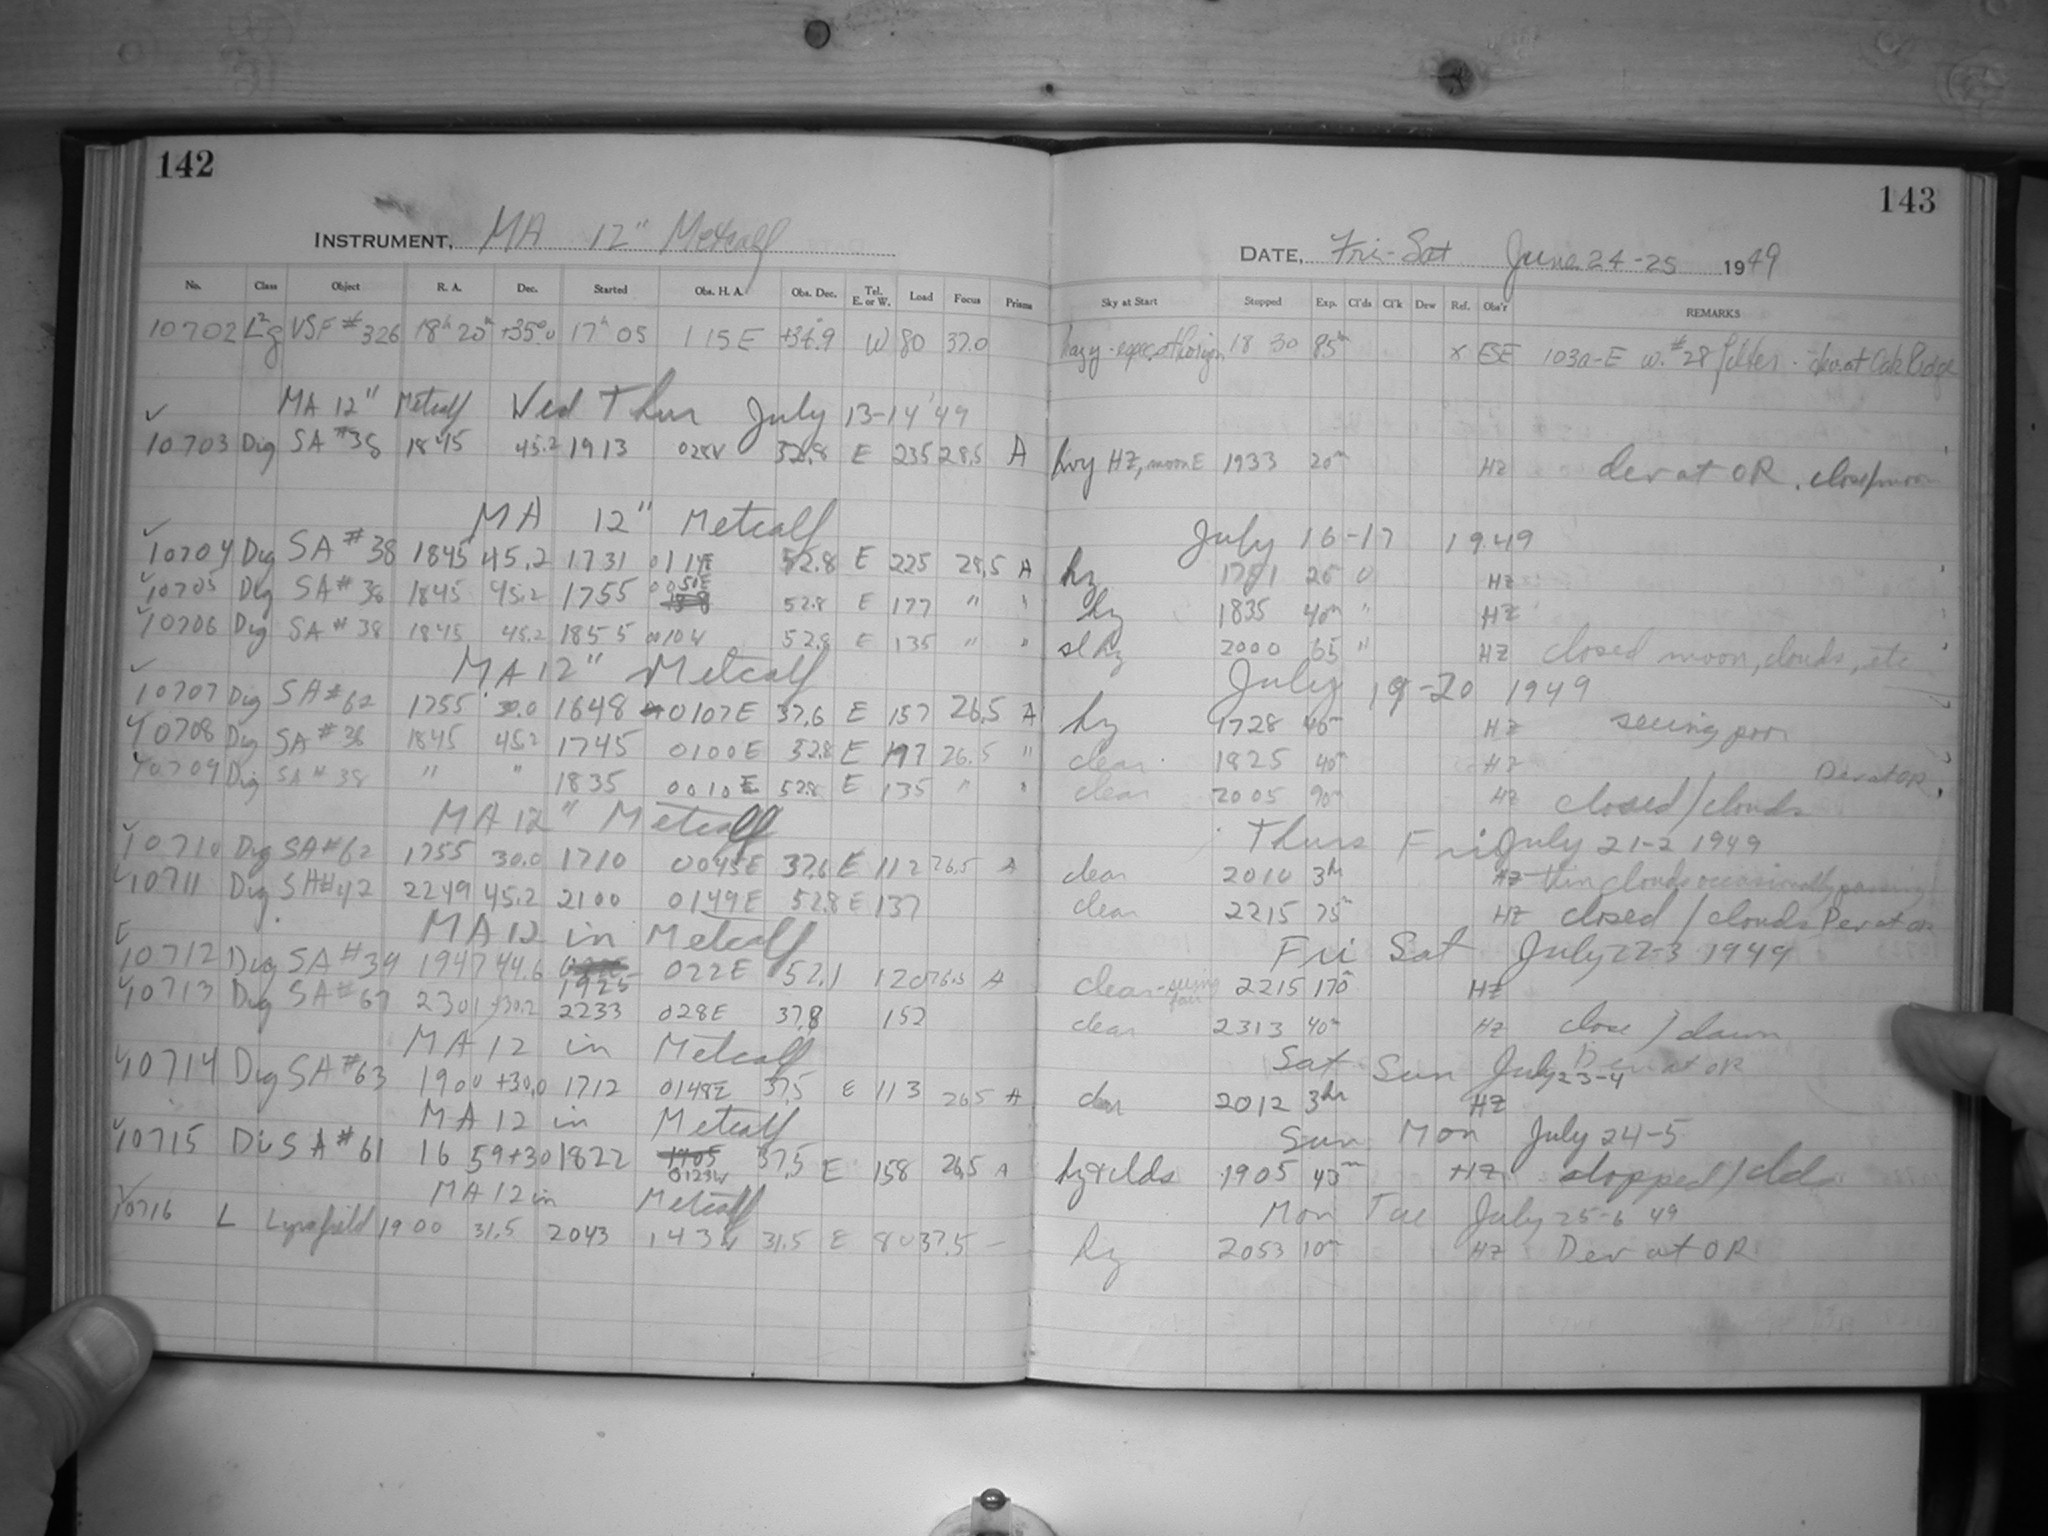 142
143
INSTRUMENT, MA 12" Metcalf
DATE, Fri-Sat June 24-25 1949
No. Class Object R. A. Dec. Started Obs. H. A. Obs. Dec. Tel. E. or W. Load Focus Prisms Sky at Start Stopped Exp. Cl'ds Cl'k Dew Ref. Obs'r REMARKS
10702 VSF #326 18h 20m +35°.0 17h 05 1 15 E +36.9 W 80 37.0 18 30 85m x ESE 103a-E w. #28 filter. dev. at Oak Ridge
MA 12" Metcalf Wed Thur July 13-14 '49
10703 Dig SA #38 1845 45.2 1913 028W 52.8 E 235 28.5 A hvy HZ, moon E 1933 20m HZ dev at OR. close/moon
MA 12" Metcalf July 16-17 1949
10704 Dig SA #38 1845 45.2 1731 0114E 52.8 E 225 28.5 A hz 1751 20 0 HZ
10705 Dig SA #38 1845 45.2 1755 0051E 52.8 E 177 " " hz 1835 40m " HZ
10706 Dig SA #38 1845 45.2 1855 0010W 52.8 E 135 " " sl hz 2000 65 " HZ closed moon, clouds, etc
MA 12" Metcalf July 19-20 1949
10707 Dig SA #62 1755 30.0 1648 0107E 37.6 E 157 26.5 A hz 1728 40m HZ seeing poor
10708 Dig SA #38 1845 45.2 1745 0100E 52.8 E 197 26.5 " clear 1825 40m HZ
10709 Dig SA #38 " " 1835 0010E 52.8 E 135 " " clear 2005 90m HZ closed/clouds Dev at OR.
MA 12" Metcalf Thurs Fri July 21-2 1949
10710 Dig SA #62 1755 30.0 1710 0045E 37.6 E 112 26.5 A clear 2010 3hr HZ thin clouds occasionally passing
10711 Dig SA #42 2249 45.2 2100 0149E 52.8 E 137 clear 2215 75m HZ closed / clouds Dev at OR
MA 12 in Metcalf Fri Sat July 22-3 1949
10712 Dig SA #39 1947 44.6 1925 022E 52.1 120 26.5 A clear - seeing fair 2215 170 HZ
10713 Dig SA #67 2301 +30.2 2233 028E 37.8 152 clear 2313 40m HZ close / dawn
Dev at OR
MA 12 in Metcalf Sat Sun July 23-4
10714 Dig SA #63 1900 +30.0 1712 0148E 37.5 E 113 26.5 A clear 2012 3hr HZ
MA 12 in Metcalf Sun Mon July 24-5
10715 Di SA #61 16 59 +30 1822 0123W 37.5 E 158 26.5 A hz + clds 1905 43m HZ stopped / clds
MA 12 in Metcalf Mon Tue July 25-6 49
10716 L Lyra field 19 00 31.5 2043 143W 31.5 E 80 37.5 - hz 2053 10m HZ Dev at OR